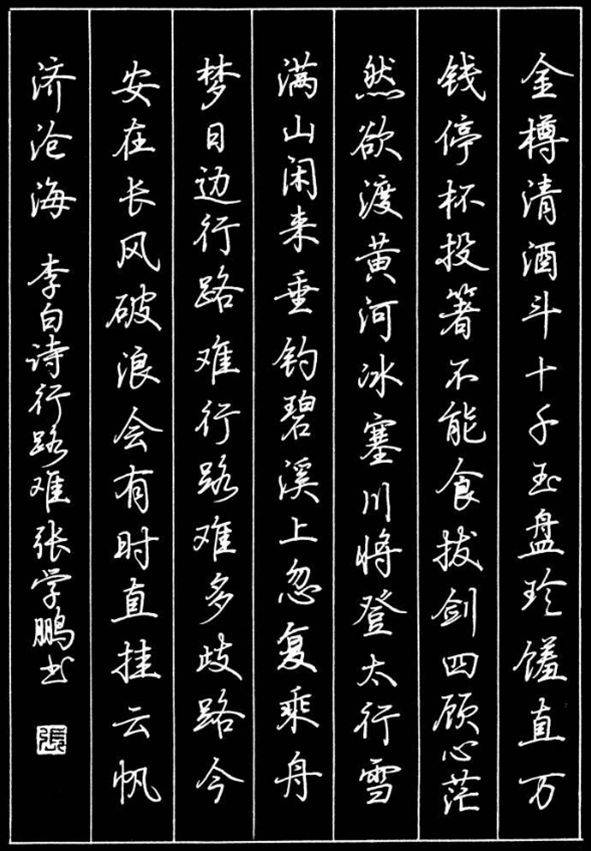 金樽清酒斗十千玉盘珍馐直万
钱停杯投箸不能食拔剑四顾心茫
然欲渡黄河冰塞川将登太行雪
满山闲来垂钓碧溪上忽复乘舟
梦日边行路难行路难多歧路今
安在长风破浪会有时直挂云帆
济沧海 李白诗行路难张学鹏书
張